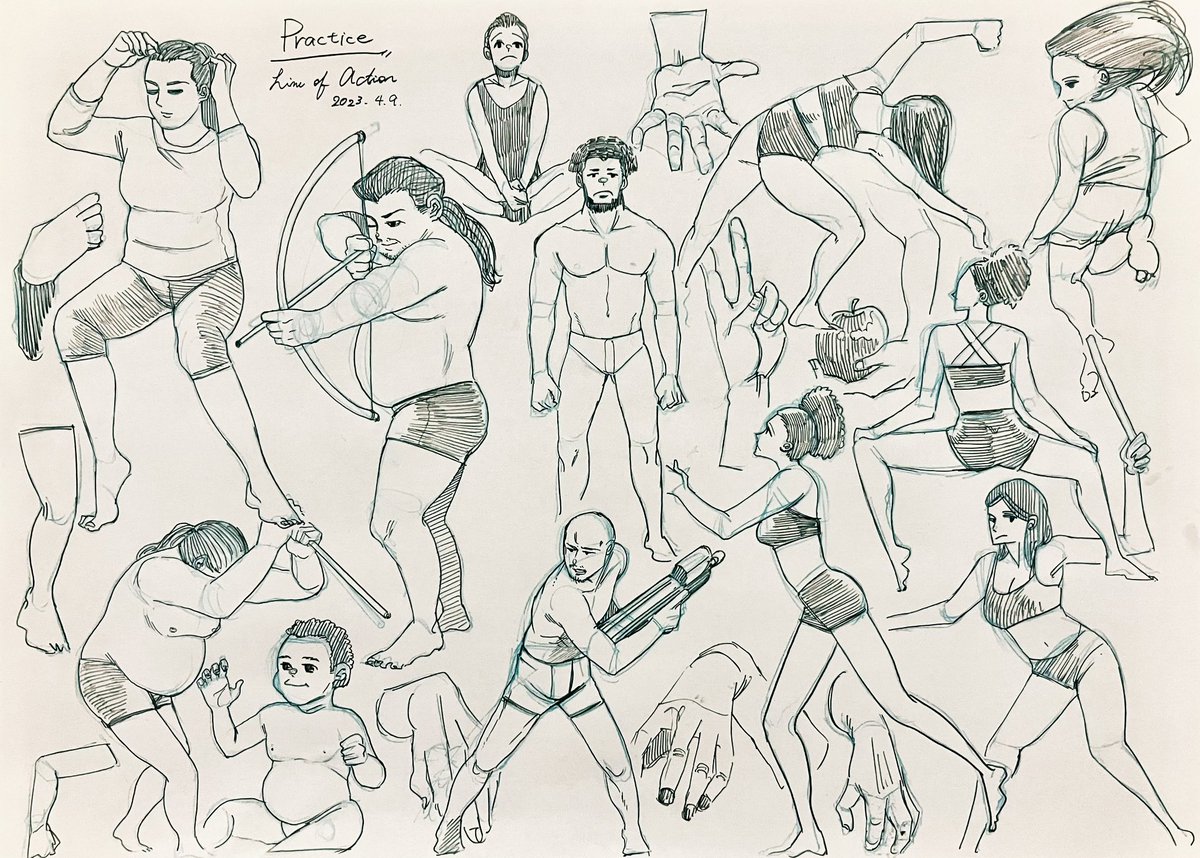 Practice
Line of Action
2023. 4. 9.